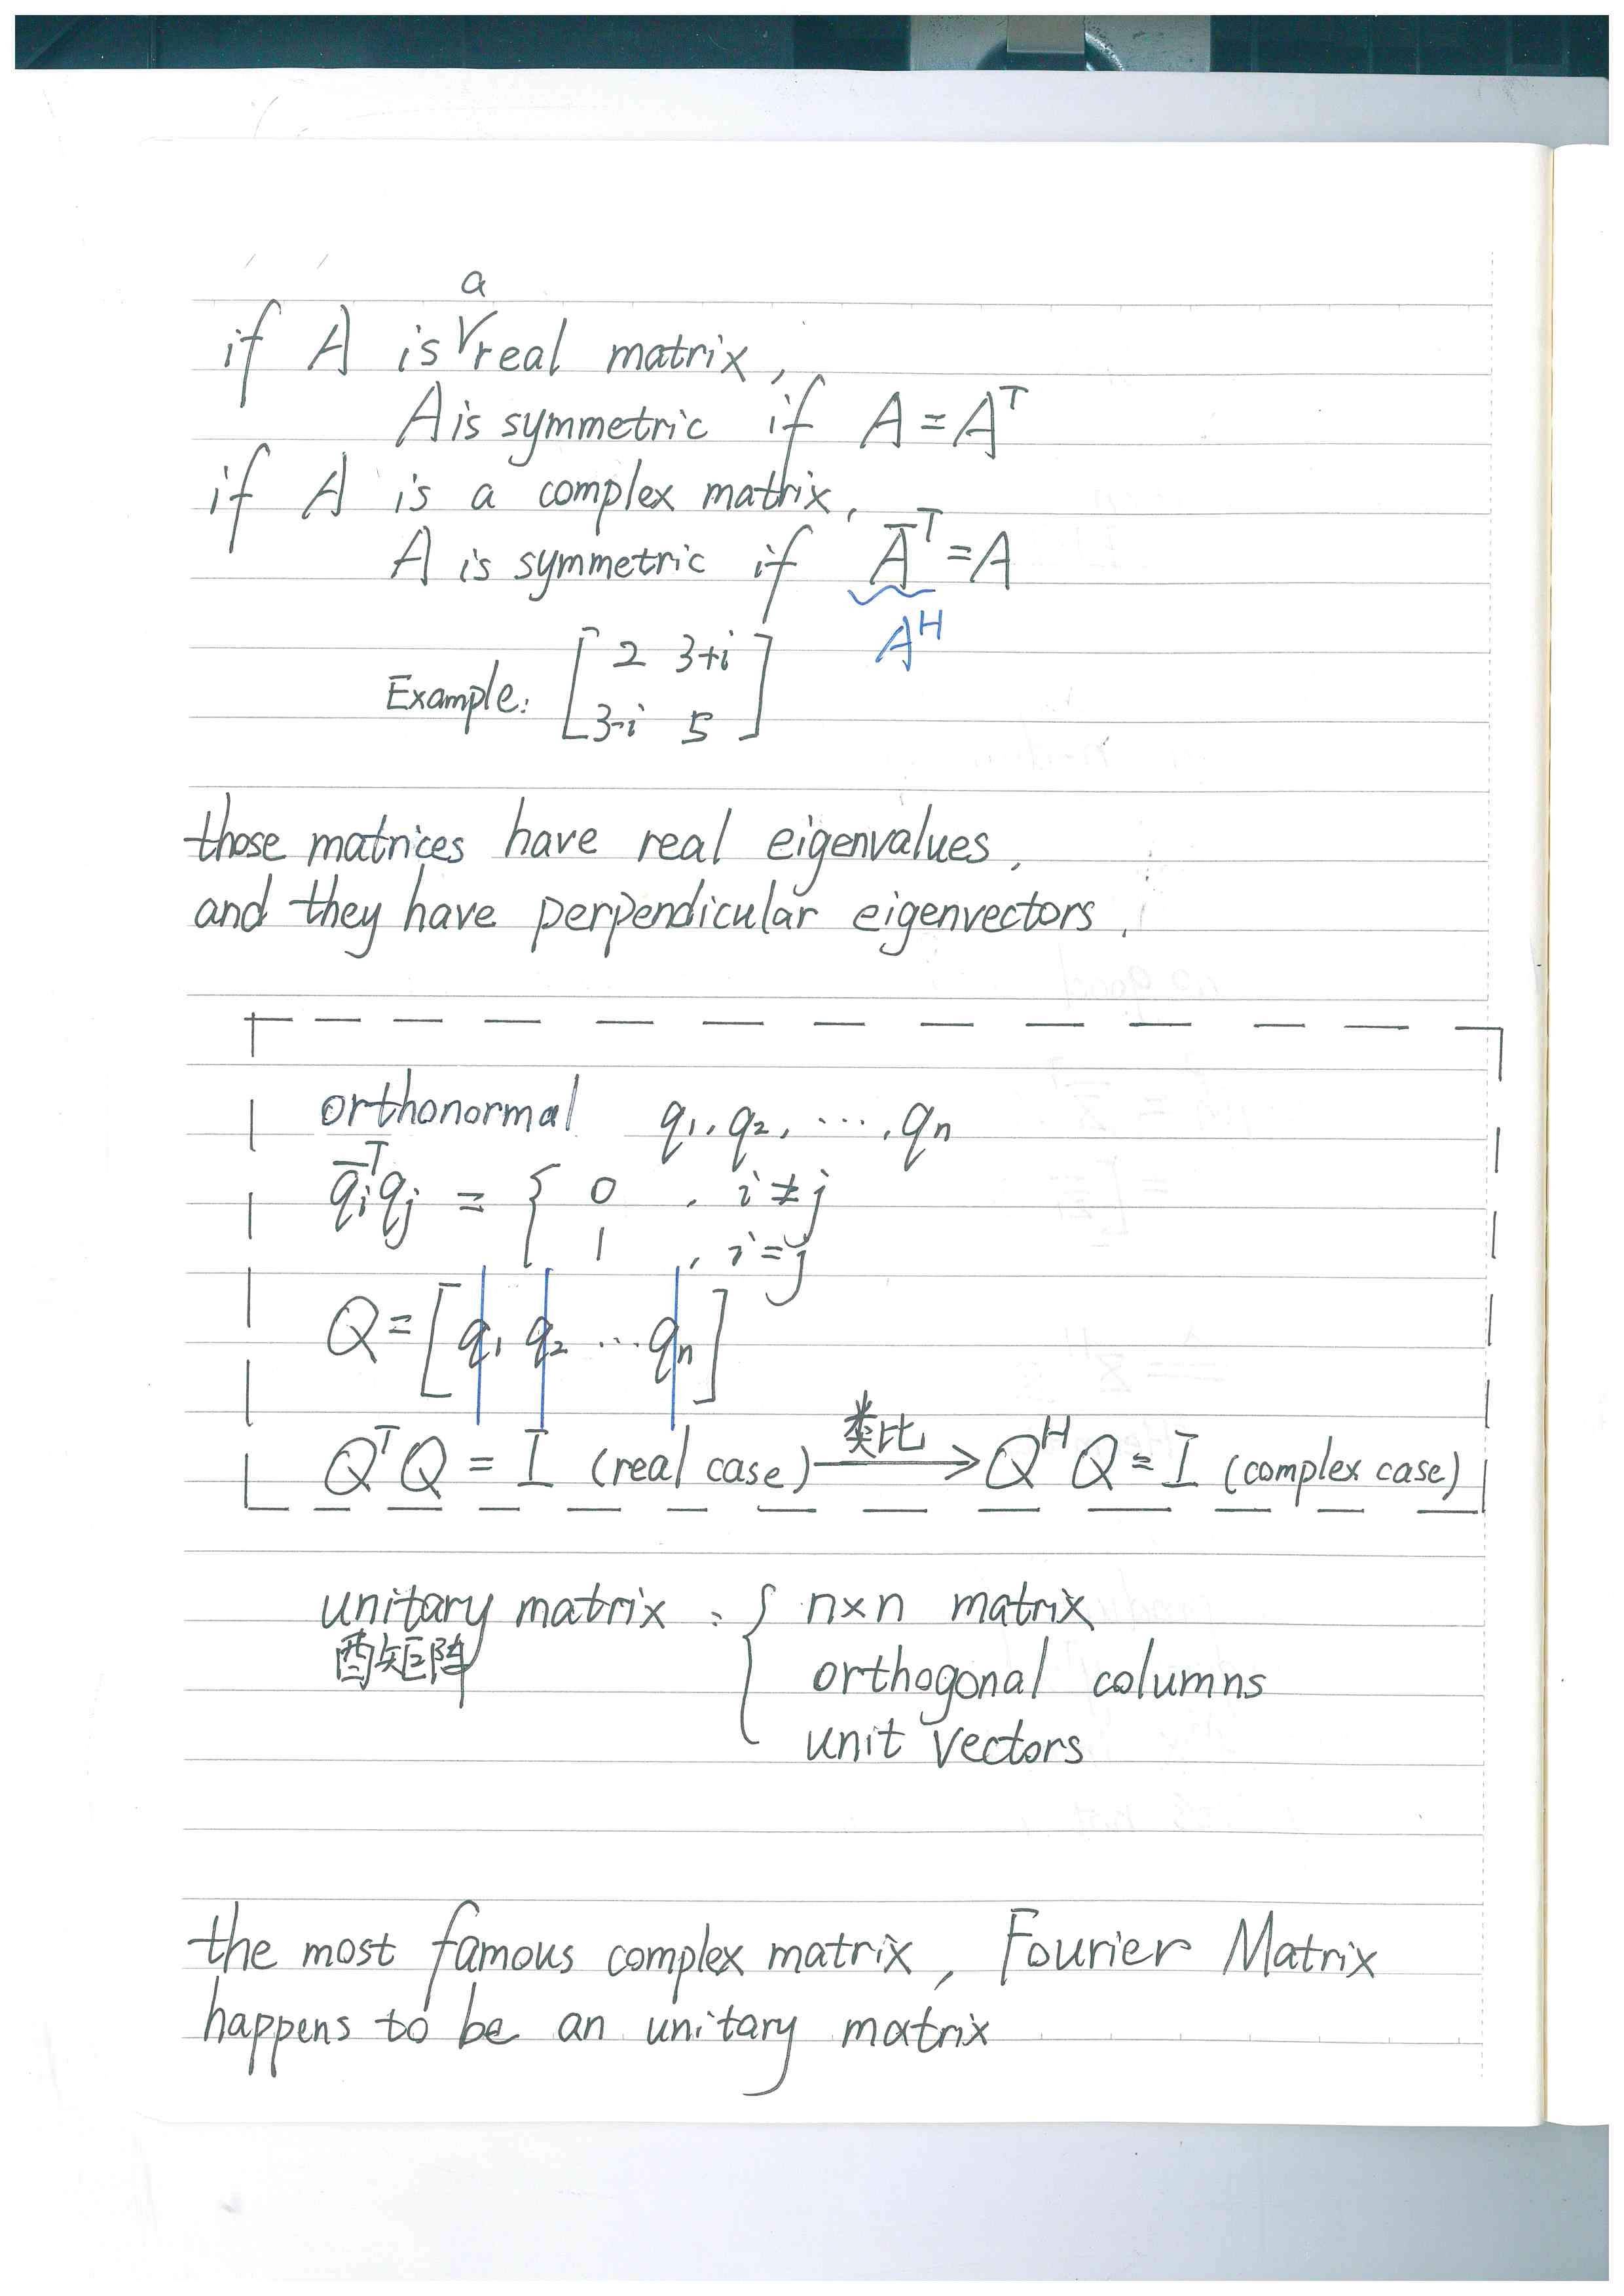 if A is a real matrix,
A is symmetric if A = A^T
if A is a complex matrix,
A is symmetric if Ā^T = A
A^H
Example: [2 3+i
3-i 5]
those matrices have real eigenvalues,
and they have perpendicular eigenvectors.
orthonormal q₁, q₂, ⋯, qₙ
q̄ᵢ^T qⱼ = { 0 , i ≠ j
1 , i = j
Q = [q₁ q₂ ⋯ qₙ]
Q^T Q = I (real case) 类比 → Q^H Q = I (complex case)
unitary matrix : { n×n matrix
酉矩阵
orthogonal columns
unit vectors
the most famous complex matrix, Fourier Matrix
happens to be an unitary matrix